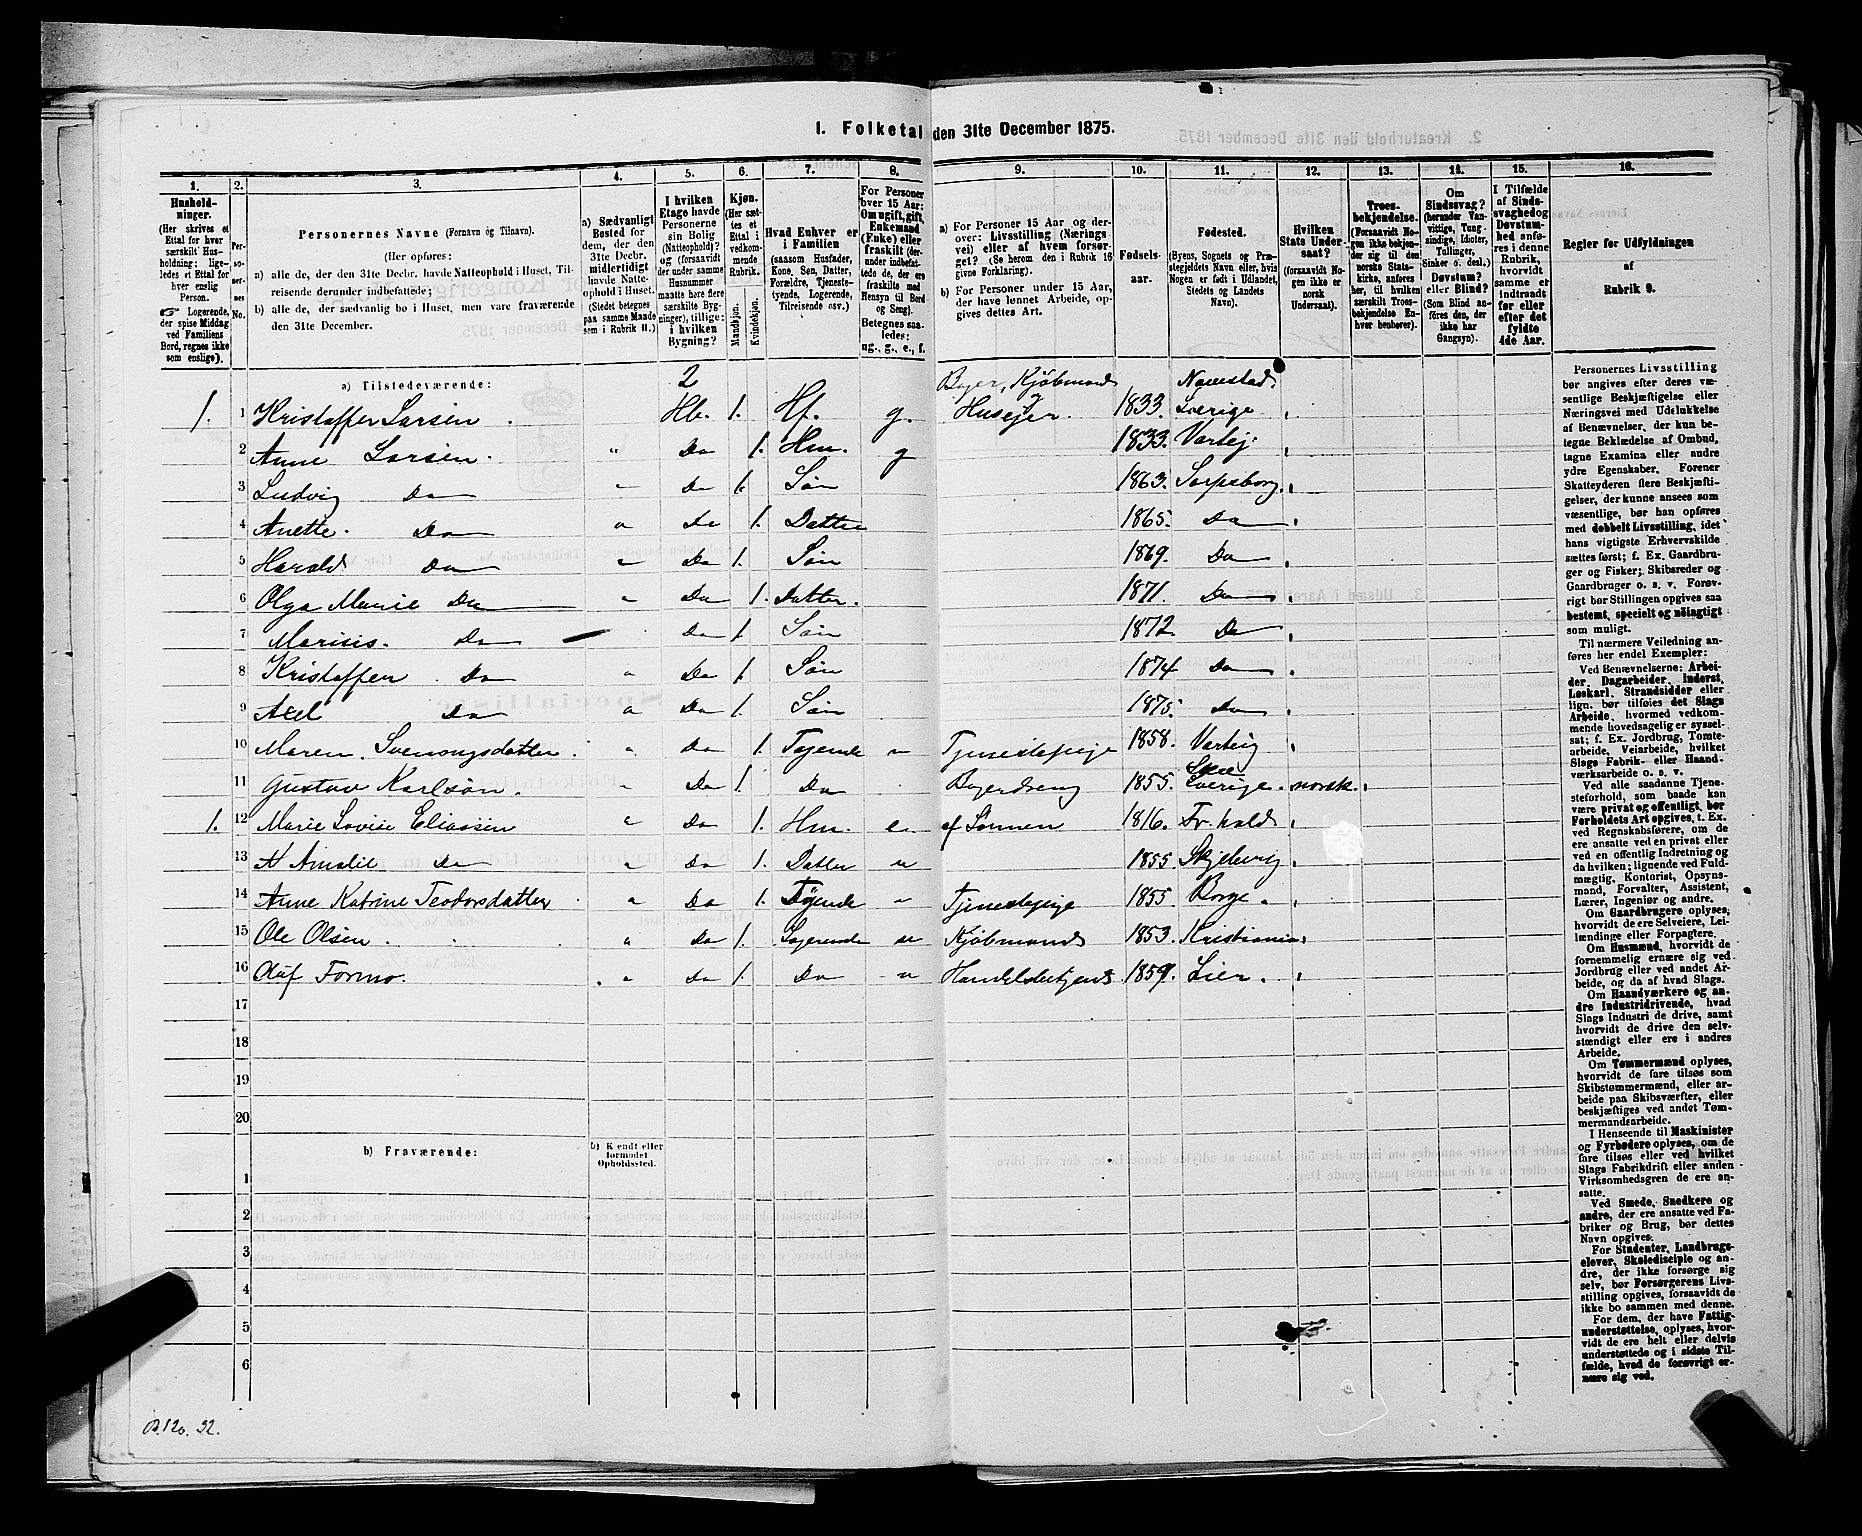 1. Folketal den 31te December 1875.
1. 2. 3. 4. 5. 6. 7. 8. 9. 10. 11. 12. 13. 14. 15. 16.
Husholdninger.
(Her skrives et
Ettal for hver
særskilt Husholdning; ligeledes et Ettal for
enslig
Person.
☞ Logerende,
der spise Middag
ved Familiens
Bord, regnes ikke
som enslige).
Personernes No.
Personernes Navne (Fornavn og Tilnavn).
(Her opføres:
a) alle de, der den 31te Decbr. havde Natteophold i Huset, Tilreisende derunder indbefattede;
b) alle de, der sædvanlig bo i Huset, men vare fraværende
den 31te December.
a) Sædvanligt
Bosted for
dem, der den
31te Decbr.
midlertidigt
havde Natteophold i Huset.
(Stedet betegnes
paa samme Maade
som i Rubrik 11.)
I hvilken
Etage havde
Personerne
sin Bolig
(Natteophold)?
og (forsaavidt
der under samme
Husnummer
maatte høre flere
særskilte Bygninger), tillige:
i hvilken
Bygning?
Kjøn.
(Her sættes et
Ettal i
vedkommende
Rubrik.
Mandkjøn.
Kvindekjøn.
Hvad Enhver er
i Familien
(saasom Husfader,
Kone, Søn, Datter,
Forældre, Tjenestetyende, Logerende,
Tilreisende osv.)
For Personer
over 15 Aar:
Om ugift, gift,
Enkemand
(Enke) eller
fraskilt (derunder indbefattede de, der ere
fraskilte med
Hensyn til Bord
og Seng).
Betegnes saaledes:
ug., g., e., f.
a) For Personer 15 Aar og derover: Livsstilling (Næringsvei) eller af hvem forsørget? (Se herom den i Rubrik 16
givne Forklaring).
b) For Personer under 15 Aar,
der have lønnet Arbeide, opgives dettes Art.
Fødselsaar.
Fødested.
(Byens, Sognets og Præstegjeldets Navn eller, hvis
Nogen er født i Udlandet,
Stedets og Landets
Navn).
Hvilken
Stats Undersaat?
(forsaavidt Nogen ikke er
norsk
Undersaat).
Troesbekjendelse.
(Forsaavidt Nogen ikke bekjender sig til den
norske Statskirke, anføres
her, til hvilken
særskilt Troesbekjendelse Enhver henhører).
Om
Sindssvag?
(herunder Vanvittige, Tungsindige, Idioter,
Tullinger,
Sinker o. desl.)
Døvstum?
eller Blind?
(Som Blind anføres den, der
ikke har
Gangsyn).
I Tilfælde
af Sindssvaghed og
Døvstumhed anføres i denne
Rubrik,
hvorvidt
samme er
indtraadt
før eller
efter det
fyldte
4de Aar.
Regler for Udfyldningen
af
Rubrik 9.
a) Tilstedeværende: 2 Bager, Kjøbmand Navestad
1. 1 Kristoffer Larsen Hb. 1. Hf. g. og Huseier. 1833. Sverige
2 Anne Larsen. „ Do 1. Hm. g 1833. Varteig
3 Ludvig Do „ Do 1. Søn 1863. Sarpsborg
4 Anette. Do „ Do 1. Datter 1865. Do
5 Harald Do „ Do 1. Søn 1869. Do
6 Olga Marie Do „ Do 1. Datter. 1871. Do
7 Do Do 1 Søn 1872 Do
8 Kristoffer Do „ Do 1 Søn 1874 Do
9 Axel Do „ Do 1. Søn 1875 Do
10 Maren Svenungsdatter „ Do 1. Tyende u Tjenestepige 1858. Varteig
11 Gustav Karlsøn. „ Do 1. Do Bagerdreng 1855. Skee Sverige. norsk.
1. 12 Marie Lovise Eliassen „ Do 1. Hm. e af Sønnen 1816. Fr.hald
13 N Amalie Do „ Do 1. Datter u 1855. Skjeberg
14 Anne Katrine Teodorsdatter „ Do 1. Tyende u Tjenestepige 1855. Borge
15 Ole Olsen. „ Do 1. Logerende u Kjøbmand 1853. Kristiania
16 Oluf Formo. „ Do 1. Do u Handelsbetjent 1859. Lier.
17
18
19
20
b) Fraværende: b) Kjendt eller
formodet
Opholdssted.
1
2
3
4
5
6
Personernes Livsstilling
bør angives efter deres væsentlige Beskjæftigelse eller
Næringsvei med Udelukkelse
af Benævnelser, der kun betegne Beklædelse af Ombud,
tagne Examina eller andre
ydre Egenskaber. Forener
Skatteyderen flere Beskjæftigelser, der kunne ansees som
væsentlige, bør han opføres
med dobbelt Livsstilling, idet
hans vigtigste Erhvervskilde
sættes først; f. Ex. Gaardbruger og Fisker; Skibsreder og
Gaardbruger o. s. v. Forøvrigt bør Stillingen opgives saa
bestemt, specielt og nøiagtigt
som muligt.
Til nærmere Veiledning anføres her endel Exempler:
Ved Benævnelserne: Arbeider, Dagarbeider, Inderst,
Løskarl, Strandsidder eller
lign. bør tilføies det Slags
Arbeide, hvormed vedkommende hovedsagelig er sysselsat; f. Ex. Jordbrug, Tomtearbeide, Veiarbeide, hvilket
Slags Fabrik- eller Haandværksarbeide o. s. v.
Ved alle saadanne Tjenesteforhold, som baade kan
være privat og offentligt, bør
Forholdets Art opgives, t. Ex.
ved Regnskabsførere, om de
ere ansatte ved en privat eller
ved en offentlig Indretning og
da hvilken; lignende ved Fuldmægtig, Kontorist, Opsynsmand, Forvalter, Assistent,
Lærer, Ingeniør og andre.
Om Gaardbrugere oplyses,
hvorvidt de ere Selveiere, Leilændinge eller Forpagtere.
Om Husmænd, hvorvidt de
fornemmelig ernære sig ved
Jordbrug eller ved andet Arbeide, og da af hvad Slags.
Om Haandværkere og andre Industridrivende, hvad
Slags Industri de drive, samt
hvorvidt de drive den selvstændigt eller ere i andres
Arbeide.
Om Tømmermænd oplyses,
hvorvidt de fare tilsøs som
Skibstømmermænd, eller arbeide paa Skibsværfter, eller
beskjæftiges ved andet Tømmermandsarbeide.
I Henseende til Maskinister
og Fyrbødere oplyses, om de
fare tilsøs eller ved hvilket
Slags Fabrikdrift eller anden
Virksomhedsgren de ere ansatte.
Ved Smede, Snedkere og
andre, der ere ansatte ved Fabriker og Brug, bør dettes
Navn opgives.
For Studenter, Landbrugselever, Skoledisciple og andre, der ikke forsørge sig
selv, bør Forsørgerens Livsstilling opgives, forsaavidt de
ikke bo sammen med denne.
For dem, der have Fattigunderstøttelse, oplyses, hvorvidt de ere helt eller delvis
understøttede og i sidste Tilfælde, hvad de forøvrigt ernære sig ved.